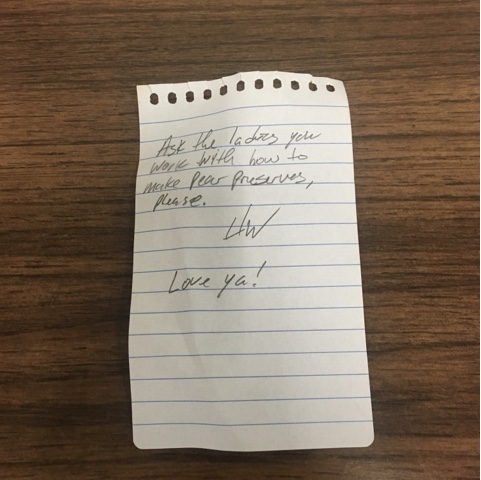 Ask the ladies you
work with how to
make pear preserves,
please.
HW
Love ya!